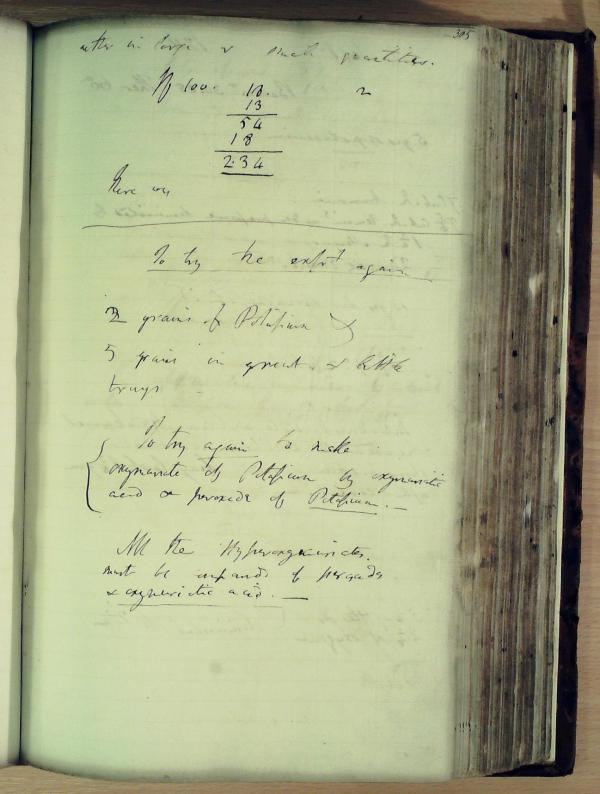 305
either in large & small quantities.
If 100. 18. 2
13
54
18
2.34
Here was
To try the expt again
2 grains of Potassium
5 grains in great & little
trays
To try again to make
oxymuriate of Potassium by oxymuriatic
acid & peroxide of Potassium. —
All the Hyperoxymuriates
must be compounds of peroxide
& oxymuriatic acid. —